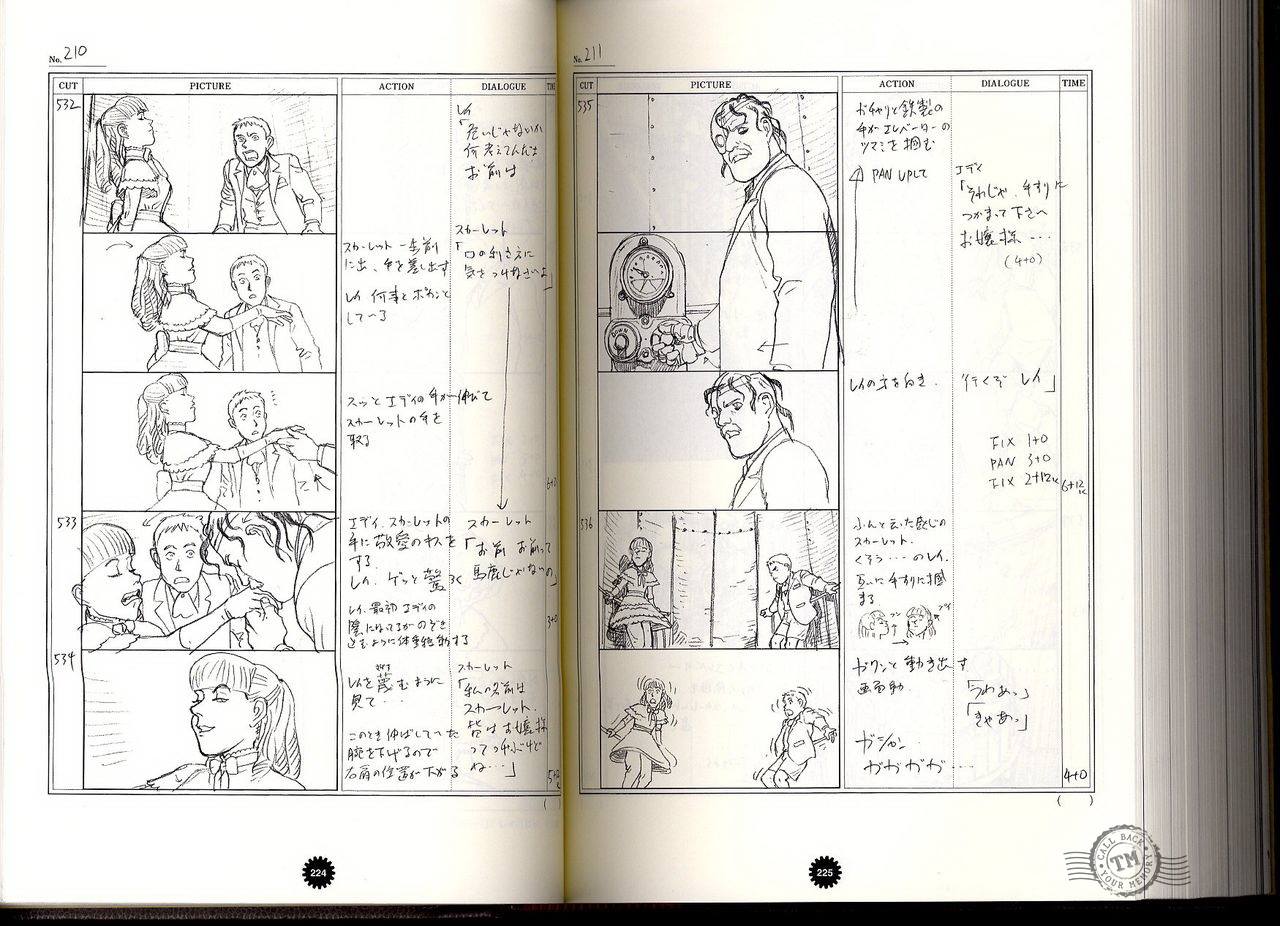 No. 210
CUT PICTURE ACTION DIALOGUE
532
レイ
「危いじゃないか
何考えてんだよ
お前は
スカーレット
「口の利き方に
気をつけなさいよ」
スカーレット 一歩前
に出、手を差し出す
レイ 何事とポカンと
している
スッとエディの手が伸びて
スカーレットの手を
取る
6+0
533
エディ、スカーレットの
手に敬愛のキスを
する
レイ、ゲッと驚く
レイ、最初エディの
陰になってるがのぞき
込むように体重移動する
スカーレット
「お前 お前って
馬鹿じゃないの」
3+0
534
レイを蔑むように
見て・・
このとき伸ばしていた
腕を下げるので
右肩の位置が下がる
スカーレット
「私の名前は
スカーレット.
皆はお嬢様
って呼ぶけど
ね・・・」
224
No. 211
CUT PICTURE ACTION DIALOGUE TIME
535
ガチャリと鉄製の
手がエレベーターの
ツマミを掴む
PAN UPして
エディ
「それじゃ、手すりに
つかまって下さい
お嬢様・・・
(4+0)
DOWN
レイの方を向き.
行くぞ レイ」
FIX 1+0
PAN 3+0
FIX 2+12K
6+12K
536
ふんと云った感じの
スカーレット.
くそぅ・・・のレイ.
互いに手すりに掴
まる
プン
プイ
ガクンと動き出す
画面動
「うわあっ」
「きゃあっ」
ガシャン
ガガガガ・・・
4+0
( )
225
CALL BACK
TM
YOUR MEMORY